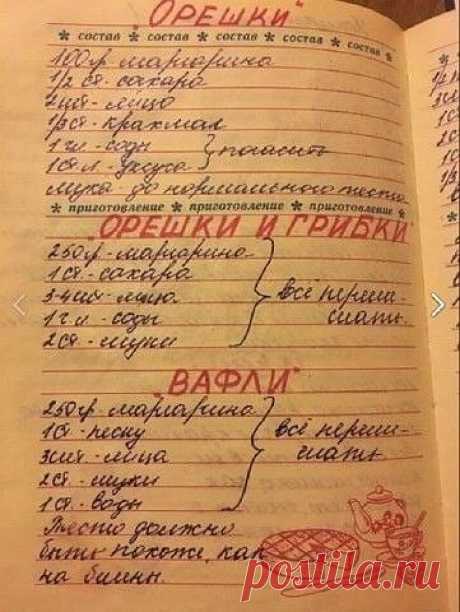 "ОРЕШКИ"
* состав * состав * состав * состав *
100гр. маргарина
1/2 ст. сахара
2шт. - яйцо
1/3 ст. - крахмал
1 ч.л. - соды } погасить
1 ст. л. - уксуса
Мука - до нормального теста
* приготовление * приготовление * приготовление *
"ОРЕШКИ И ГРИБКИ"
250гр. - маргарина
1 ст. - сахара
3-4 шт. - яйца } всё переме-
1 ч. л. - соды шать.
2 ст. - муки
"ВАФЛИ"
250гр. - маргарина
1 ст. - песку } всё переме-
3 шт. - яйца шать
2 ст. - муки
1 ст. - воды
Тесто должно
быть похоже, как
на блины.
postila.ru